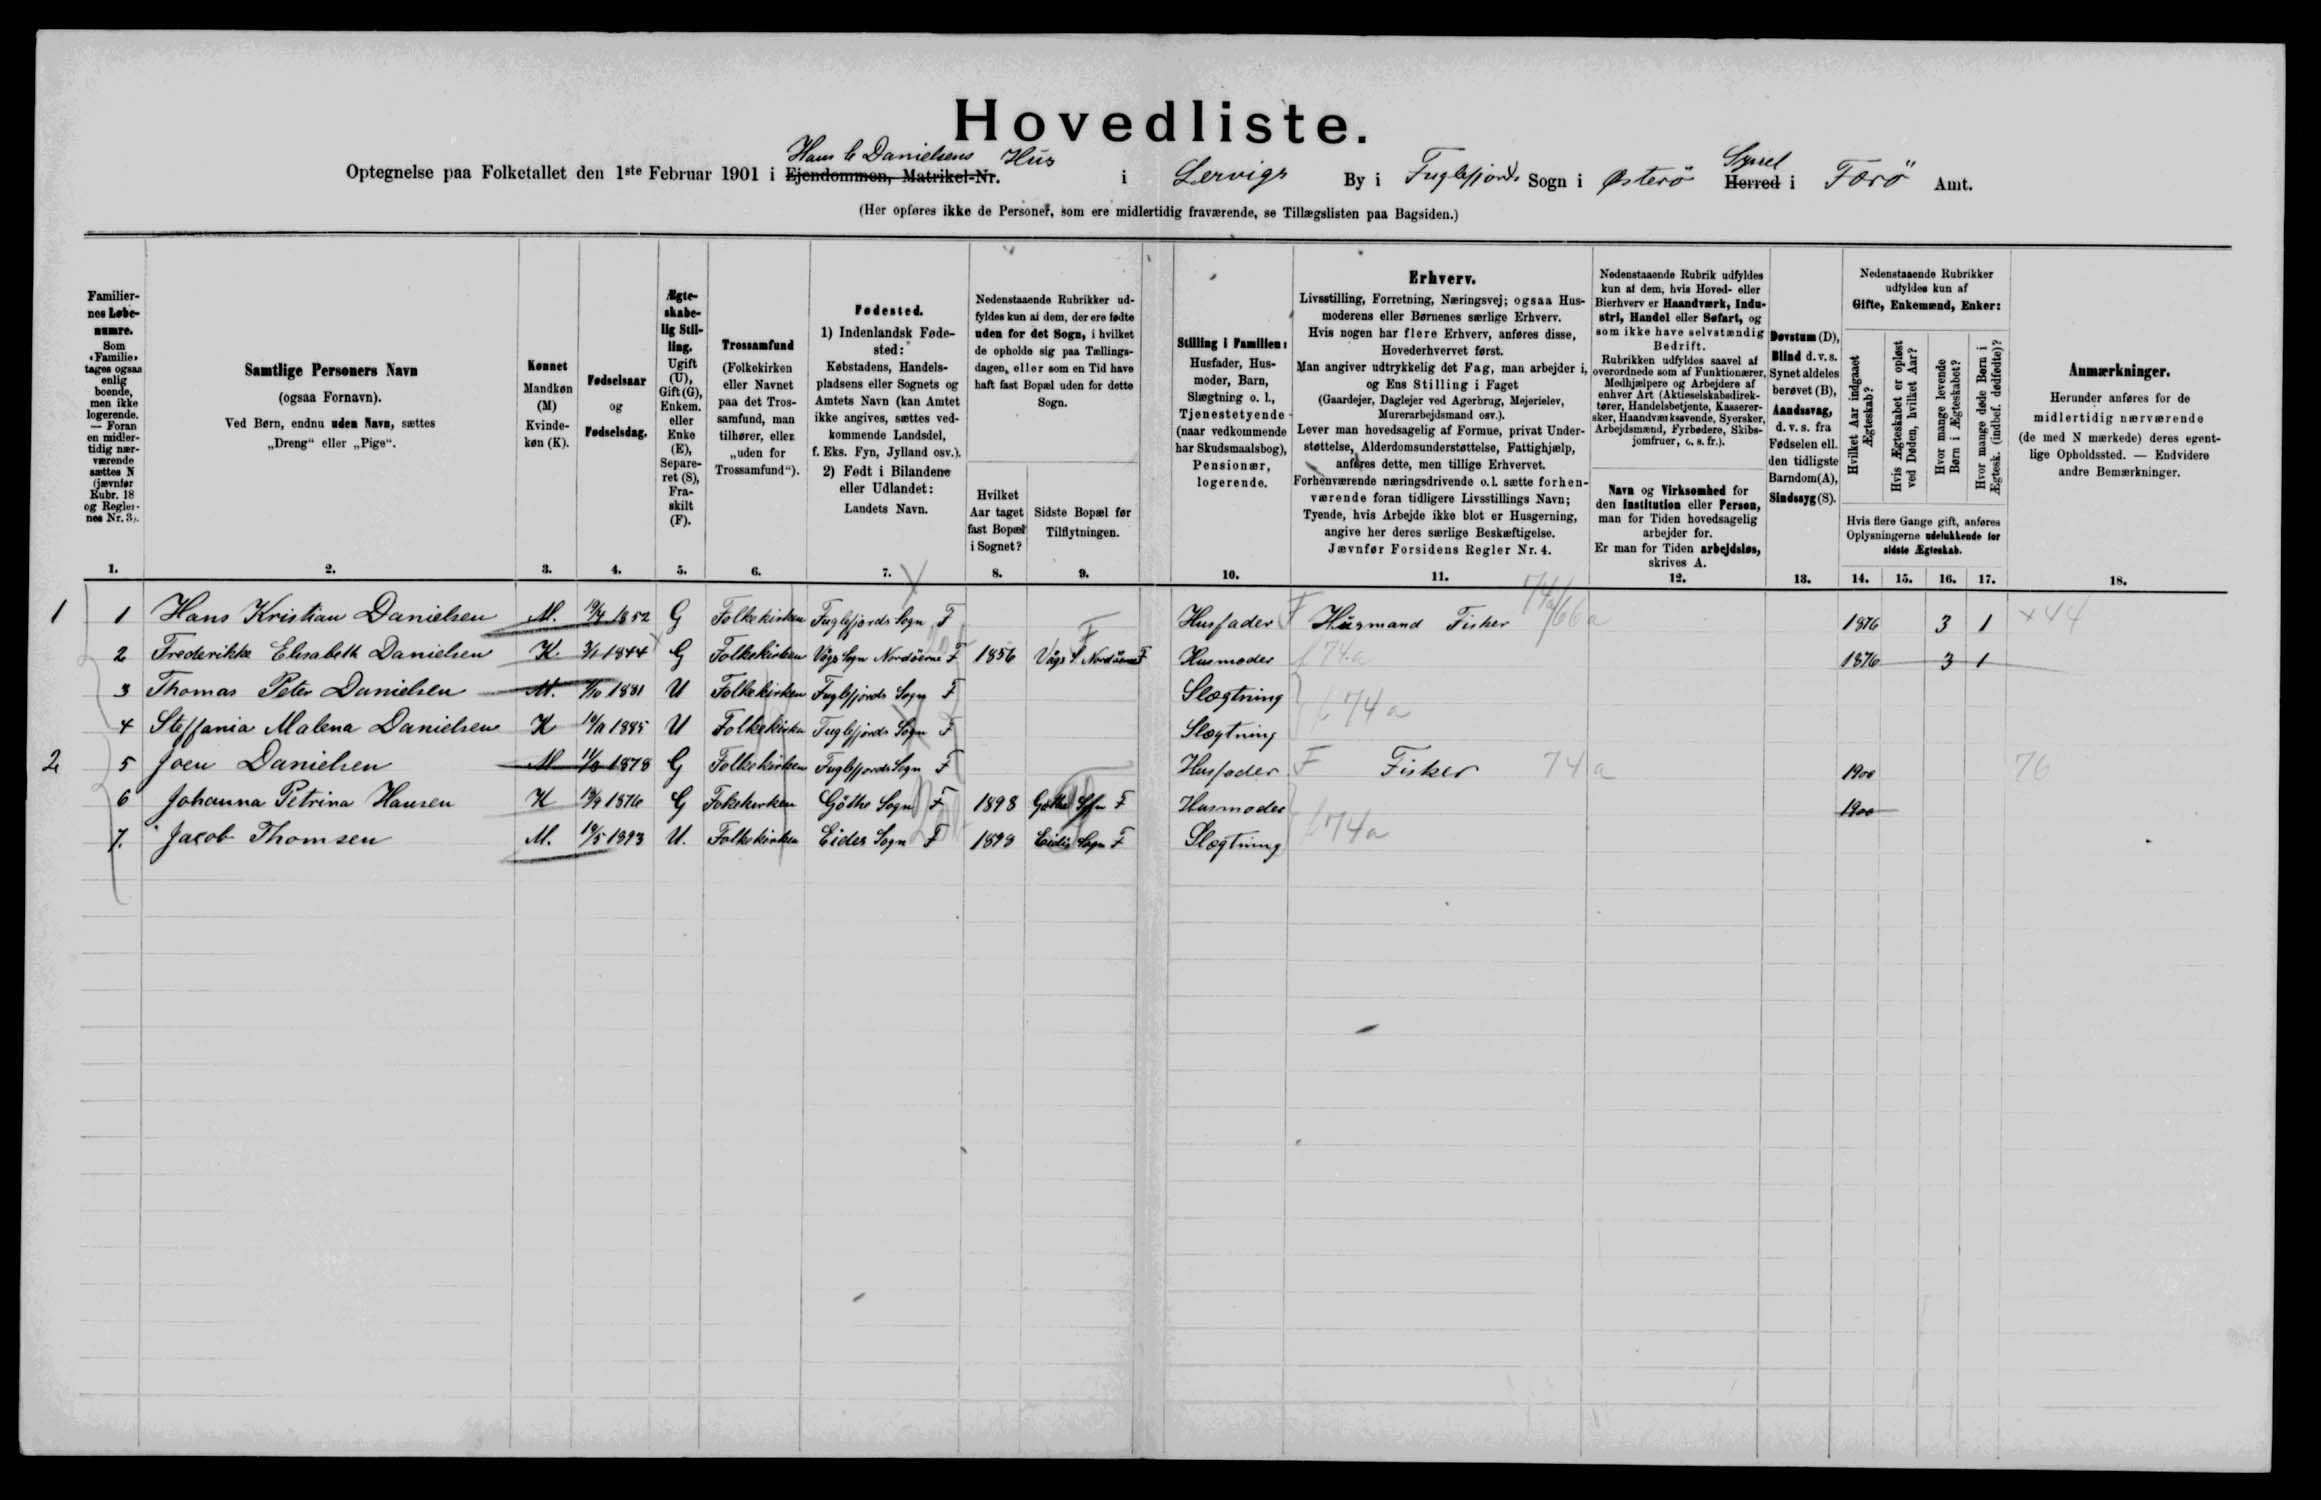 Hovedliste.
Hans C Danielsens Hus
Optegnelse paa Folketallet den 1ste Februar 1901 i Ejendommen, Matrikel-Nr. i Lervigs By i Fuglefjords Sogn i Østerö Herred i Færö Amt.
Syssel
(Her opføres ikke de Personer, som ere midlertidig fraværende, se Tillægslisten paa Bagsiden.)
Familiernes Løbenumre.
Som «Familie» tages ogsaa enlig boende, men ikke logerende. — Foran en midlertidig nærværende sættes N (jævnfør Rubr. 18 og Reglernes Nr. 3).
1.
Samtlige Personers Navn
(ogsaa Fornavn).
Ved Børn, endnu uden Navn, sættes
„Dreng“ eller „Pige“.
2.
Kønnet
Mandkøn
(M)
Kvinde-
køn (K).
3.
Fødselsaar
og
Fødselsdag.
4.
Ægteskabelig Stilling.
Ugift (U), Gift (G), Enkem. eller Enke (E), Separeret (S), Fraskilt (F).
5.
Trossamfund
(Folkekirken
eller Navnet
paa det Tros-
samfund, man
tilhører, eller
„uden for
Trossamfund“).
6.
Fødested.
1) Indenlandsk Føde-
sted:
Købstadens, Handels-
pladsens eller Sognets og
Amtets Navn (kan Amtet
ikke angives, sættes ved-
kommende Landsdel,
f. Eks. Fyn, Jylland osv.).
2) Født i Bilandene
eller Udlandet:
Landets Navn.
7.
Nedenstaaende Rubrikker ud-
fyldes kun af dem, der ere fødte
uden for det Sogn, i hvilket
de opholde sig paa Tællings-
dagen, eller som en Tid have
haft fast Bopæl uden for dette
Sogn.
Hvilket
Aar taget
fast Bopæl
i Sognet?
8.
Sidste Bopæl før
Tilflytningen.
9.
Stilling i Familien:
Husfader, Hus-
moder, Barn,
Slægtning o. l.,
Tjenestetyende
(naar vedkommende
har Skudsmaalsbog),
Pensionær,
logerende.
10.
Erhverv.
Livsstilling, Forretning, Næringsvej; ogsaa Hus-
moderens eller Børnenes særlige Erhverv.
Hvis nogen har flere Erhverv, anføres disse,
Hovederhvervet først.
Man angiver udtrykkelig det Fag, man arbejder i,
og Ens Stilling i Faget
(Gaardejer, Daglejer ved Agerbrug, Mejerielev,
Murerarbejdsmand osv.).
Lever man hovedsagelig af Formue, privat Under-
støttelse, Alderdomsunderstøttelse, Fattighjælp,
anføres dette, men tillige Erhvervet.
Forhenværende næringsdrivende o. l. sætte forhen-
værende foran tidligere Livsstillings Navn;
Tyende, hvis Arbejde ikke blot er Husgerning,
angive her deres særlige Beskæftigelse.
Jævnfør Forsidens Regler Nr. 4.
11.
Nedenstaaende Rubrik udfyldes
kun af dem, hvis Hoved- eller
Bierhverv er Haandværk, Indu-
stri, Handel eller Søfart, og
som ikke have selvstændig
Bedrift.
Rubrikken udfyldes saavel af
overordnede som af Funktionærer,
Medhjælpere og Arbejdere af
enhver Art (Aktieselskabsdirek-
tører, Handelsbetjente, Kasserer-
sker, Haandværkssvende, Syersker,
Arbejdsmænd, Fyrbødere, Skibs-
jomfruer, o. s. fr.).
Navn og Virksomhed for
den Institution eller Person,
man for Tiden hovedsagelig
arbejder for.
Er man for Tiden arbejdsløs,
skrives A.
12.
Døvstum (D),
Blind d. v. s.
Synet aldeles
berøvet (B),
Aandssvag,
d. v. s. fra
Fødselen ell.
den tidligste
Barndom (A),
Sindssyg (S).
13.
Nedenstaaende Rubrikker
udfyldes kun af
Gifte, Enkemænd, Enker:
Hvilket Aar indgaaet Ægteskab?
Hvis Ægteskabet er opløst ved Døden, hvilket Aar?
Hvor mange levende Børn i Ægteskabet?
Hvor mange døde Børn i Ægtesk. (indbef. dødfødte)?
Hvis flere Gange gift, anføres
Oplysningerne udelukkende for
sidste Ægteskab.
14. 15. 16. 17.
Anmærkninger.
Herunder anføres for de
midlertidig nærværende
(de med N mærkede) deres egent-
lige Opholdssted. — Endvidere
andre Bemærkninger.
18.
1 1 Hans Kristian Danielsen M. 19/4 1852 G Folkekirken Fuglefjords Sogn F Husfader F Husmand Fisker 74a/66a 1876 3 1 ×44
2 Frederikke Elisabeth Danielsen K. 3/1 1844 G Folkekirken Vågs Sogn Nordöerne F 1856 Vågs S. Nordöerne F Husmoder 74a 1876 3 1
3 Thomas Peter Danielsen M. 1881 U Folkekirken Fuglefjords Sogn F Slægtning
4 Steffania Malena Danielsen K 1885 U Folkekirken Fuglefjords Sogn F Slægtning 74a
2 5 Joen Danielsen M 1878 G Folkekirken Fuglefjords Sogn F Husfader F Fisker 74a 1900 76
6 Johanna Petrina Hansen K 19/9 1876 G Fokekerken Göthe Sogn F 1898 Gøthe F Husmoder 1900
7. Jacob Thomsen M. 19/5 1893 U. Folkekirken Eides Sogn F 1898 Eides Sogn F Slægtning 74a